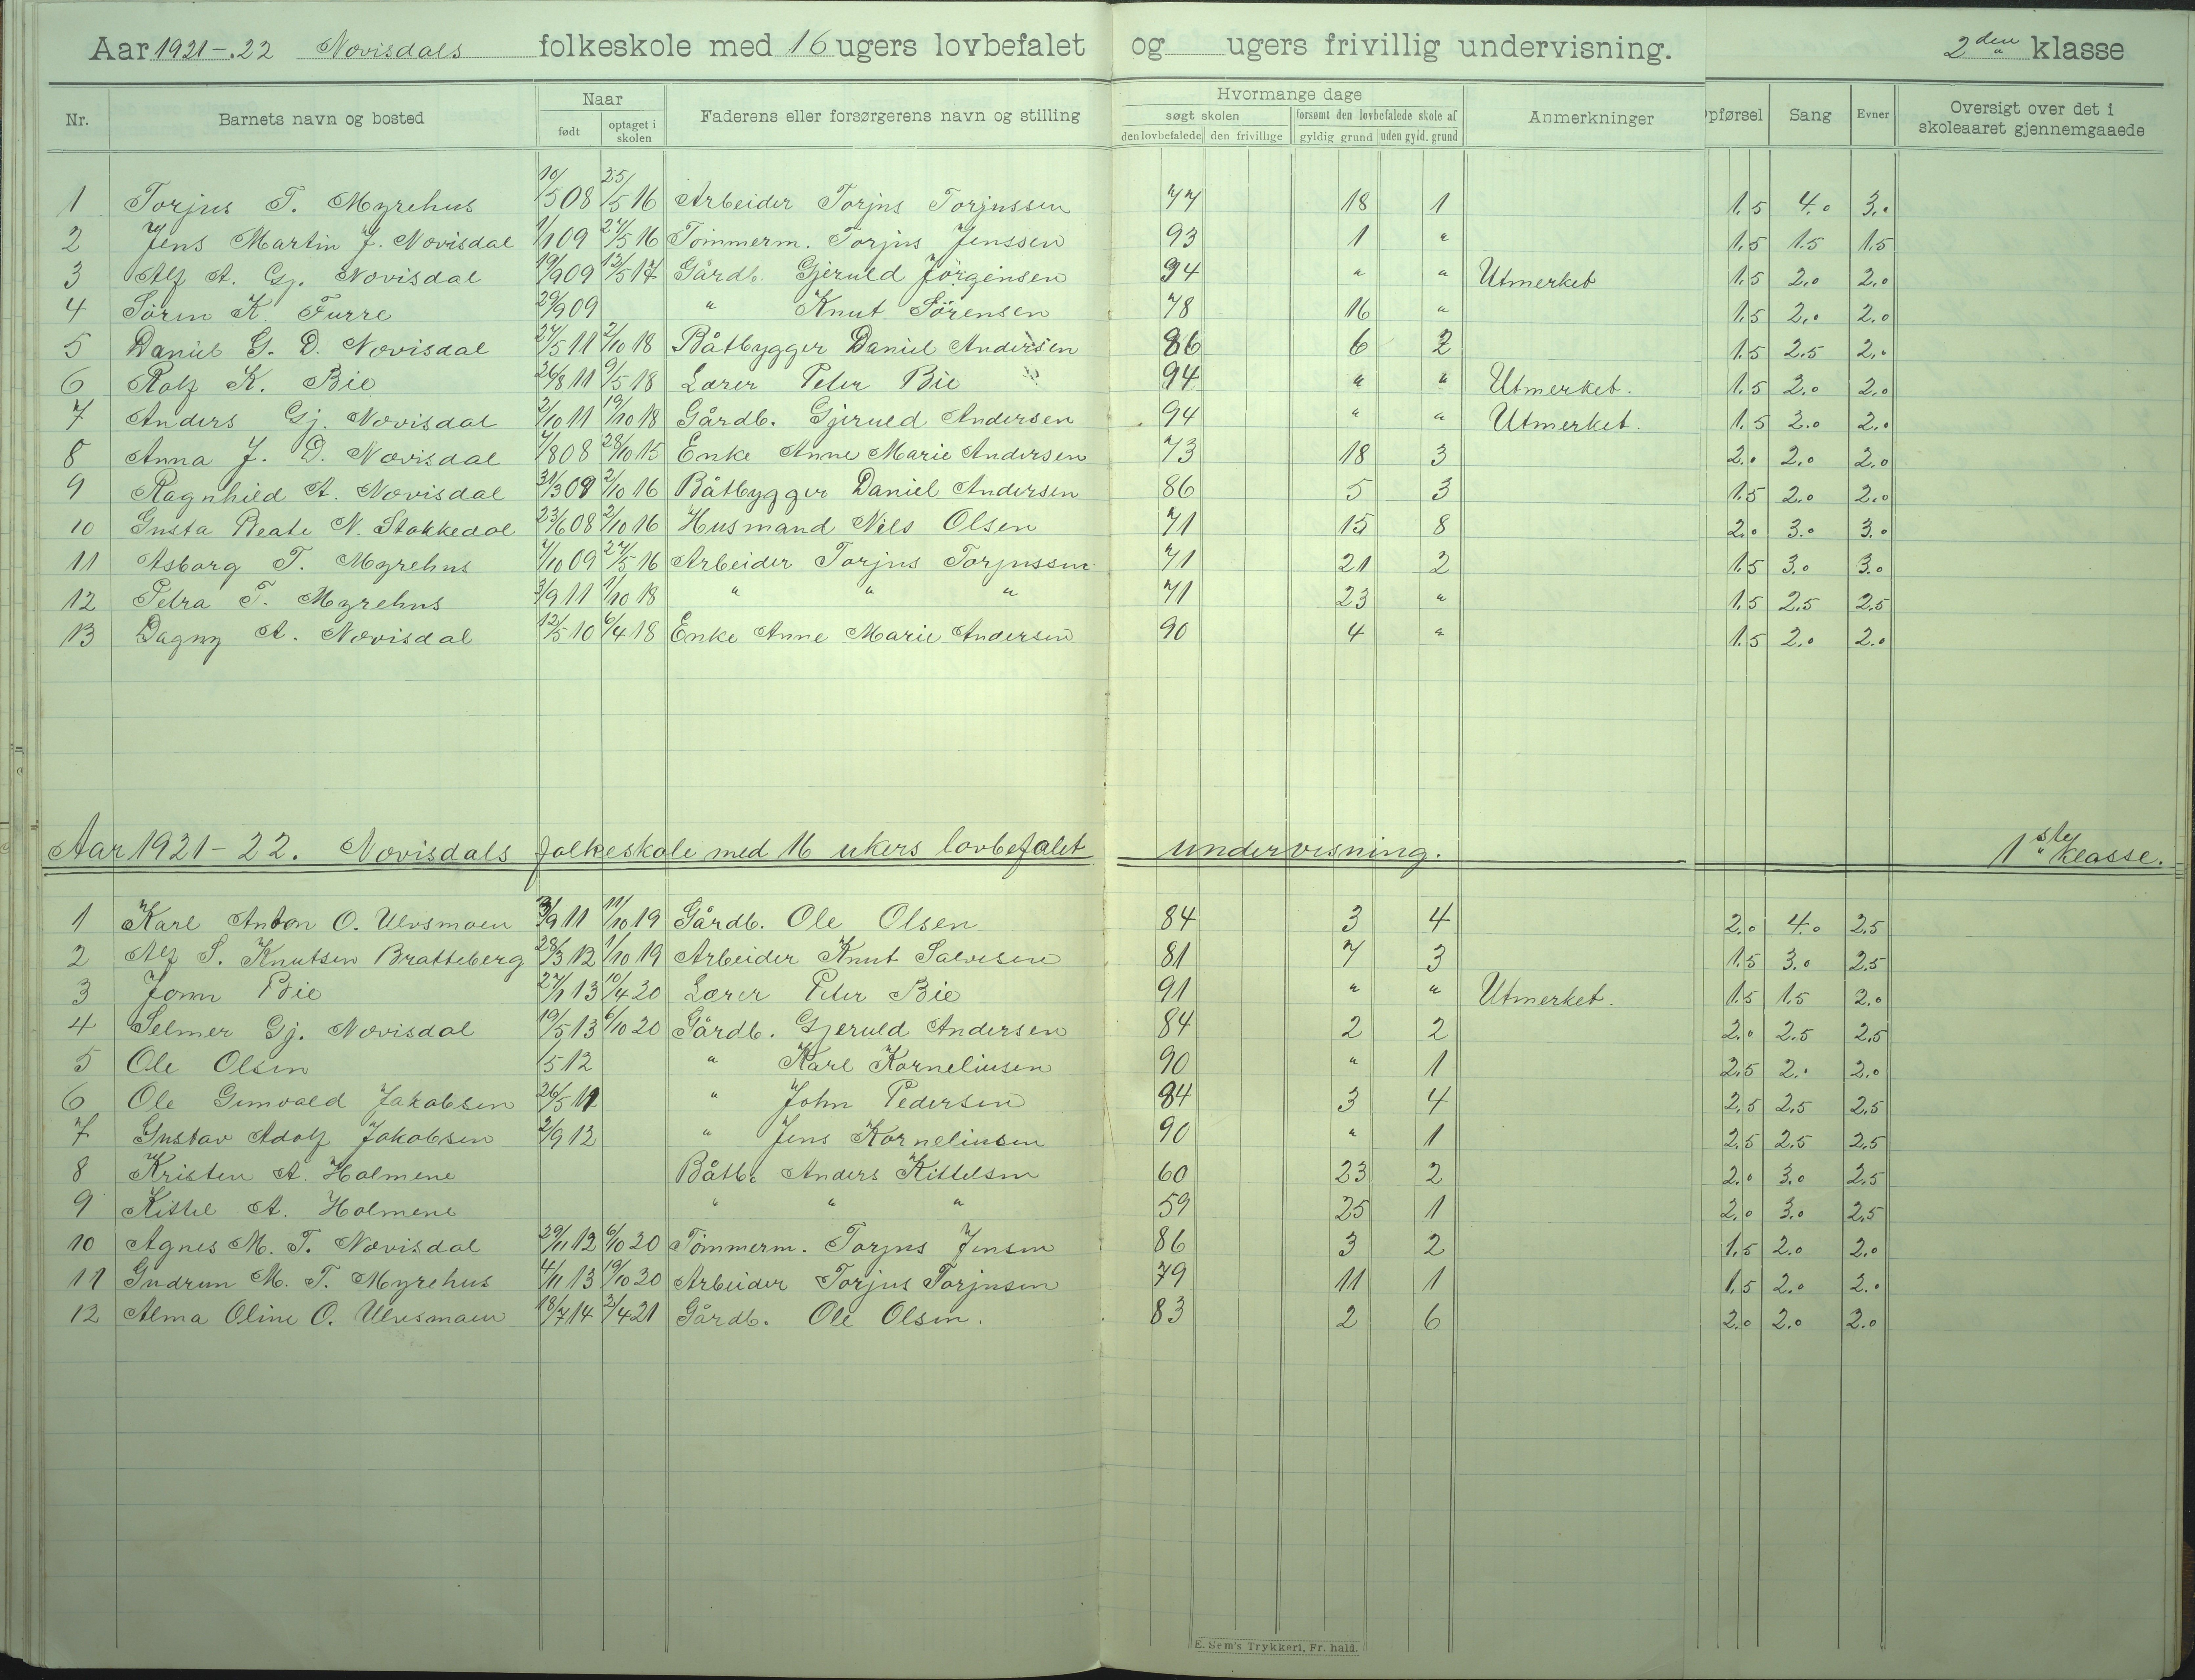 Aar 1921-.22 Novisdals folkeskole med 16 ugers lovbefalet og ugers frivillig undervisning. 2den klasse
Nr. Barnets navn og bosted Naar født optaget i skolen Faderens eller forsørgerens navn og stilling Hvormange dage søgt skolen den lovbefalede den frivillige forsømt den lovbefalede skole af gyldig grund uden gyld. grund Anmerkninger Opførsel Sang Evner Oversigt over det i skoleaaret gjennemgaaede
1 Torjus T. Myrehus 10/5 08 25/5 16 Arbeider Torjus Torjussen 77 18 1 1.5 4.0 3.0
2 Jens Martin J. Novisdal 1/1 09 27/5 16 Tömmerm. Torjus Jenssen 93 1 " 1.5 1.5 1.5
3 Alf A. Gj. Novisdal 19/9 09 12/5 17 Gårdb. Gjeruld Jörgensen 94 " " Utmerket 1.5 2.0 2.0
4 Sören K. Furre 29/9 09 " Knut Sörensen 78 16 " 1.5 2.0 2.0
5 Daniel G. D. Novisdal 27/5 11 2/10 18 Båtbygger Daniel Andersen 86 6 2 1.5 2.5 2.0
6 Rolf K. Bie 26/8 11 9/5 18 Lærer Peter Bie 94 " " Utmerket. 1.5 2.0 2.0
7 Anders Gj. Novisdal 2/10 11 19/10 18 Gårdb. Gjeruld Andersen 94 " " Utmerket. 1.5 3.0 2.0
8 Anna J. D. Novisdal 7/8 08 28/10 15 Enke Anne Marie Andersen 73 18 3 2.0 2.0 2.0
9 Ragnhild A. Novisdal 31/3 09 2/10 16 Båtbygger Daniel Andersen 86 5 3 1.5 2.0 2.0
10 Gusta Beate N. Stokkedal 23/6 08 2/10 16 Husmand Nils Olsen 71 15 8 2.0 3.0 3.0
11 Asborg T. Myrehus 7/10 09 27/5 16 Arbeider Torjus Torjussen 71 21 2 1.5 3.0 3.0
12 Petra T. Myrehus 3/9 11 1/10 18 " " " 71 23 " 1.5 2.5 2.5
13 Dagny A. Novisdal 12/5 10 6/4 18 Enke Anne Marie Andersen 90 4 " 1.5 2.0 2.0
Aar 1921-22. Novisdals folkeskole med 16 ukers lovbefalet undervisning. 1ste klasse.
1 Karl Anton O. Ulvsmoen 3/9 11 11/10 19 Gårdb. Ole Olsen 84 3 4 2.0 4.0 2.5
2 Alf S. Knutsen Bratteberg 28/3 12 1/10 19 Arbeider Knut Salvesen 81 7 3 1.5 3.0 2.5
3 Jonn Bie 27/1 13 10/4 20 Lærer Peter Bie 91 " " Utmerket. 1.5 1.5 2.0
4 Selmer Gj. Novisdal 19/5 13 6/10 20 Gårdb. Gjeruld Andersen 84 2 2 2.0 2.5 2.5
5 Ole Olsen /5 12 " Karl Korneliusen 90 " 1 2.5 2.0 2.0
6 Ole Gunvald Jakobsen 26/5 11 " John Pedersen 84 3 4 2.5 2.5 2.5
7 Gustav Adolf Jakobsen 2/9 12 " Jens Korneliusen 90 " 1 2.5 2.5 2.5
8 Kristen A. Holmene Båtb. Anders Kittelsen 60 23 2 2.0 3.0 2.5
9 Kittel A. Holmene " " " 59 25 1 2.0 3.0 2.5
10 Agnes M. T. Novisdal 29/11 12 6/10 20 Tömmerm. Torjus Jensen 86 3 2 1.5 2.0 2.0
11 Gudrun M. T. Myrehus 4/11 13 19/10 20 Arbeider Torjus Torjusen 79 11 1 1.5 2.0 2.0
12 Alma Oline O. Ulvsmoen 18/7 14 2/4 21 Gårdb. Ole Olsen. 83 2 6 2.0 2.0 2.0
E. Sem's Trykkeri, Fr. hald.